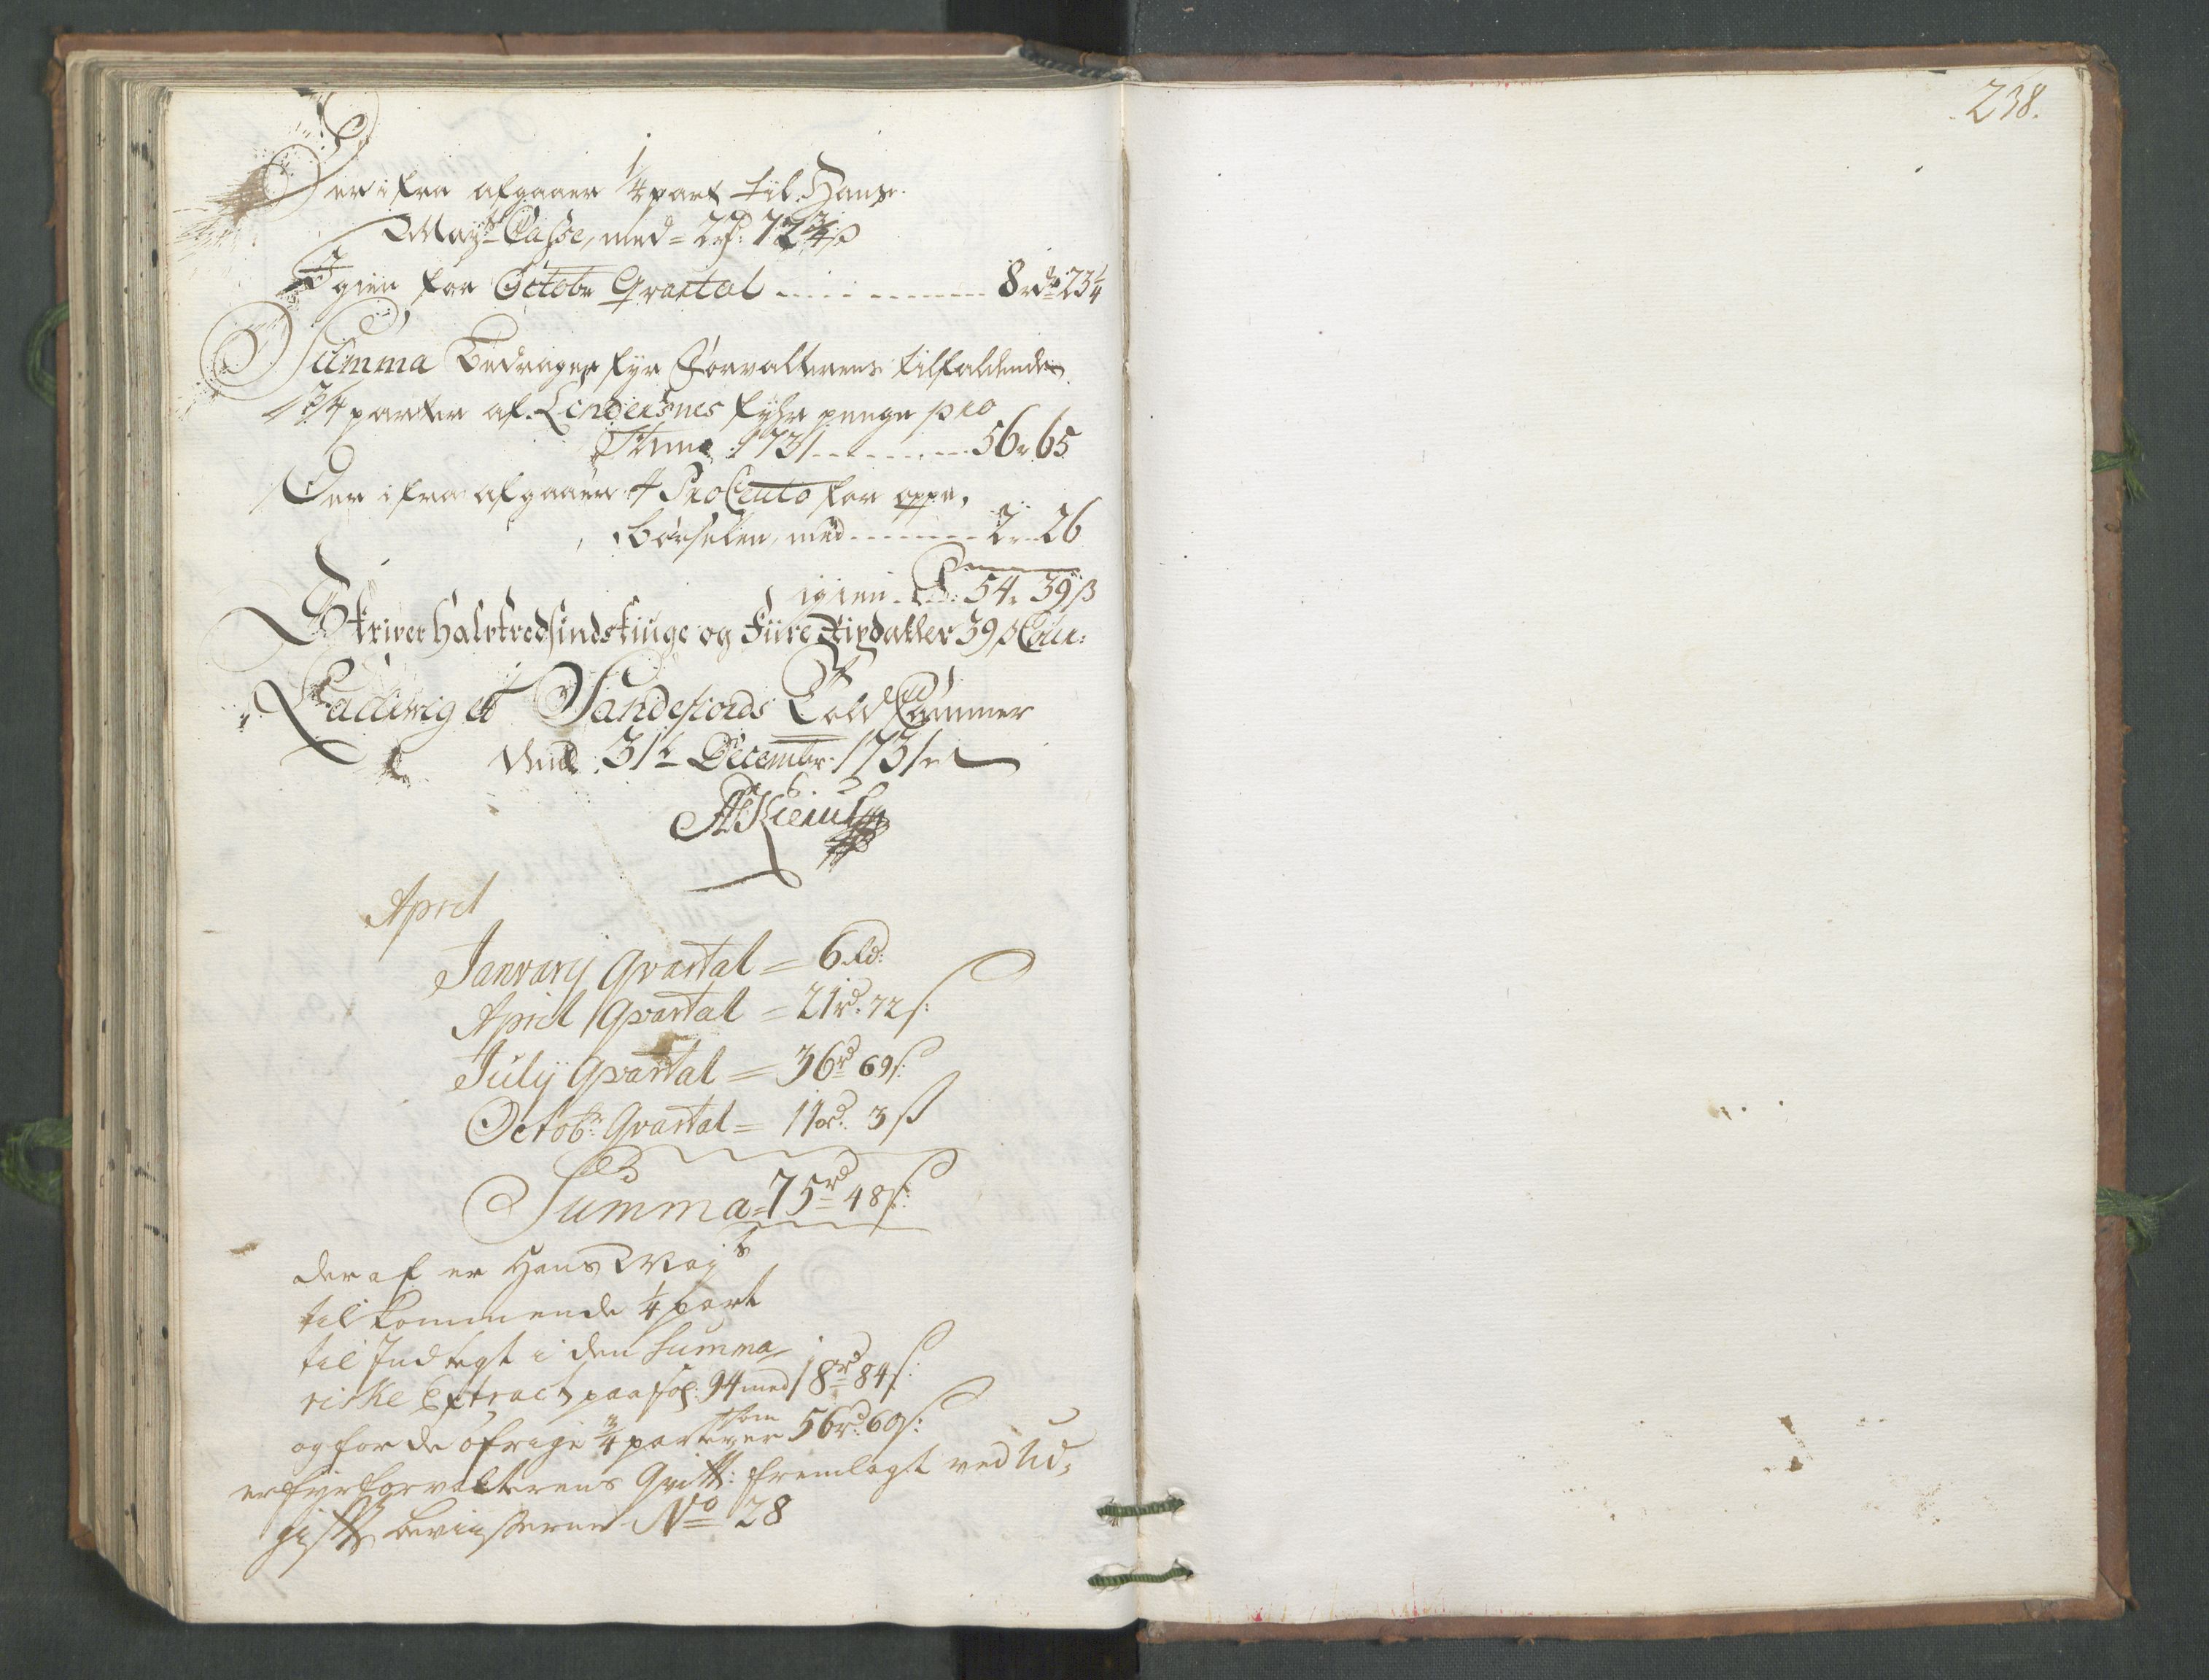 Der ifra afgaaer 1/4 part til Hans
May:ts Casse, med = 2 rd: 72 3/4 ß
Igien for Octobr Qvartal ..... 8 rdr 23 1/4
Summa Bedrager fyr Forvalterens tilfaldende
3/4 parter af Lindesnes fyhr penge pro
Anno 1731 ......... 56 „ 65
Der ifra afgaaer 4 ProCento for oppe,
børselen, med ........ 2 „ 26
igien ... 54 „ 39 ß
Skriver Halvtredsindstiuge og Fiire Rixdaller 39 ß Cour:
Laurwig et Sandefiords Told Cammer
den 31t Decembr: 1731
April
Janvarij Qvartal = 6 rd:
April Qvartal = 21 rd: 72 s:
Julij Qvartal = 36 rd 69 s:
Octobr: Qvartal = 11 rd. 3 ß
Summa = 75 rd 48 s:
deraf er Hans May ts
tilkommende 1/4 part
til Indtegt i den Summa-
riske Extract paa fol: 94 med 18 rd 84 s:
og for de øfrige 3/4 parter som er 56 rd: 60 s:
er fyrforvalterens Qvitt: fremlagt ved Ud-
gifts beviiserne No 28
238.